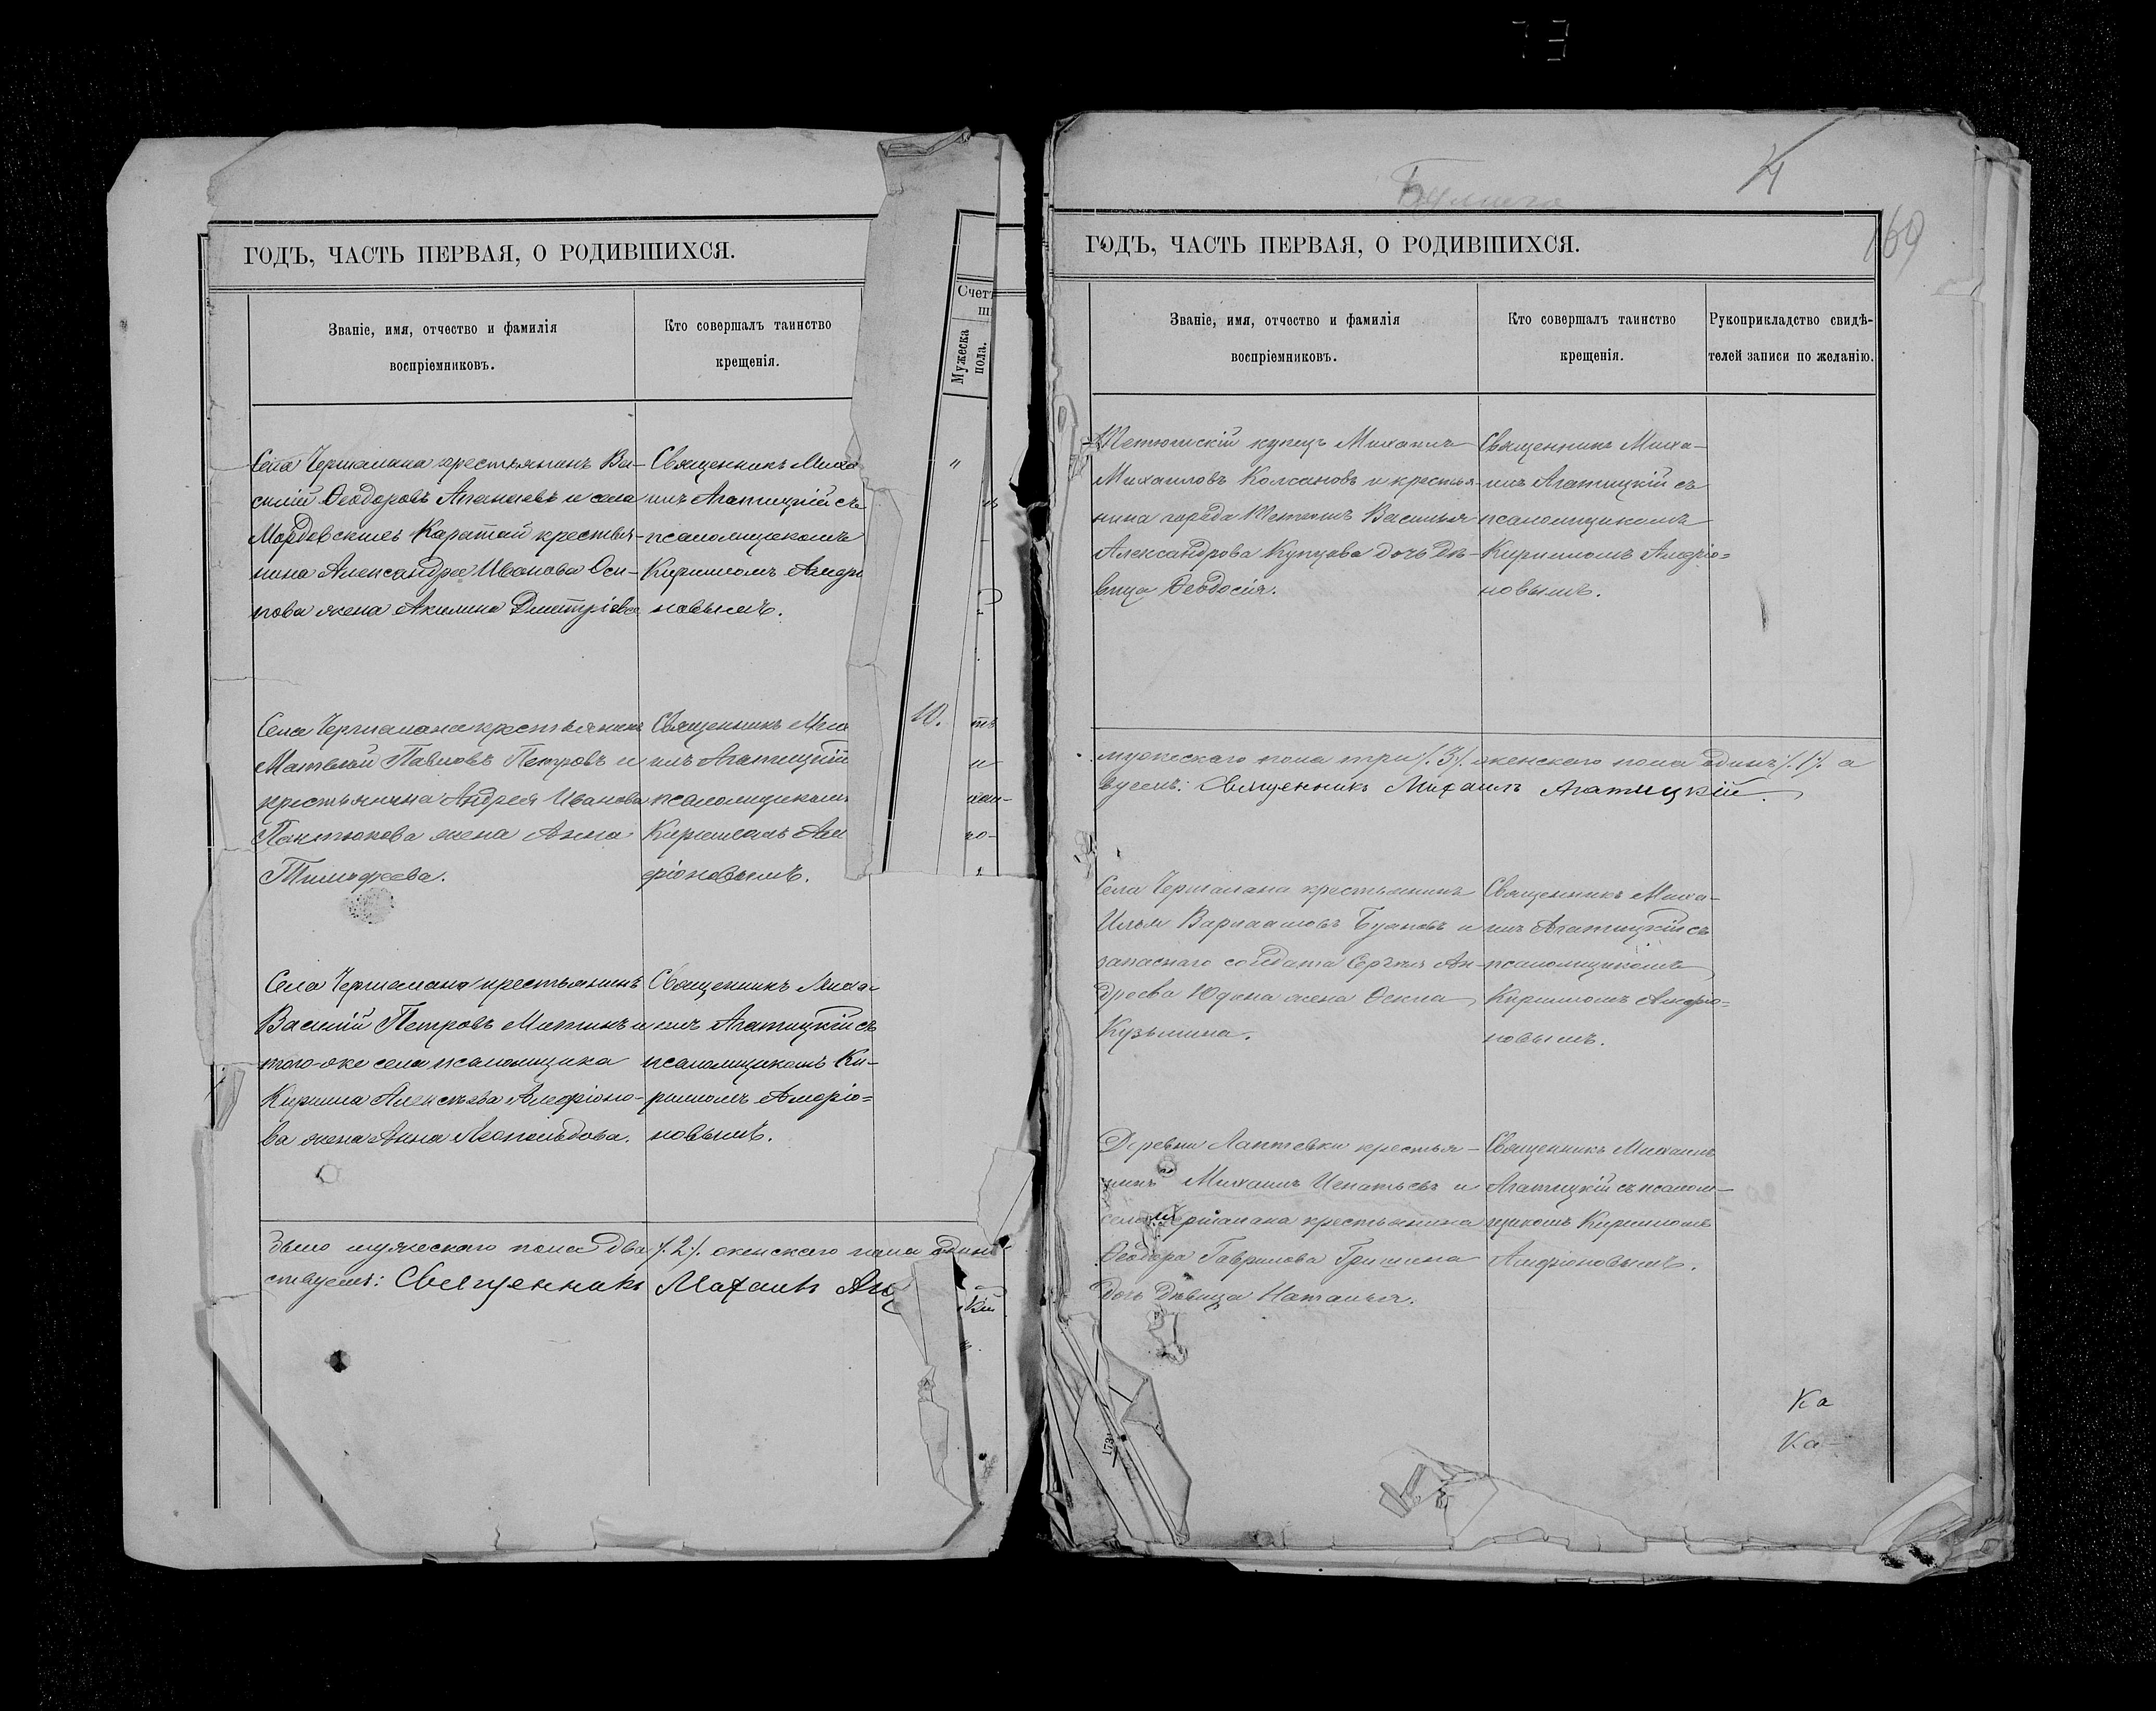 ГОДЪ, ЧАСТЬ ПЕРВАЯ, О РОДИВШИХСЯ.
Званіе, имя, отчество и фамилія
воспріемниковъ.
Кто совершалъ таинство
крещенія.
Села Чермалана крестьянинъ Ва-
силій Ѳеодоровъ и села
Мордовскихъ Каратай крестья-
нина Александра Иванова Оси-
пова жена Акилина Дмитріева
Священникъ Миха
илъ Агатицкій съ
псаломщикомъ
Кирилломъ Амфрі
новымъ.
Села Чермалана крестьянинъ
Матвей Павловъ Петровъ и
крестьянина Андрея Иванова
Пантюкова жена Анна
Тимофеева.
Священникъ
илъ Агатицкій
псаломщикомъ
Кирилломъ Ам
фріоновымъ.
Села Чермалана крестьянинъ
Василій Петровъ Митинъ и
того-же села псаломщика
Кирилла Алексѣева Амфріоно-
ва жена Анна Леопольдова.
Священникъ Миха-
илъ Агатицкій съ
псаломщикомъ Ки-
рилломъ Амфріо=
новымъ.
было мужескаго пола два /.2/. женскаго пола одинъ
ствуемъ: Священникъ Михаилъ Аг
кій
Счет
Мужеска
пола.
"
10.
ГОДЪ, ЧАСТЬ ПЕРВАЯ, О РОДИВШИХСЯ.
169
Званіе, имя, отчество и фамилія
воспріемниковъ.
Кто совершалъ таинство
крещенія.
Рукоприкладство свидѣ-
телей записи по желанію.
Тетюшскій купецъ Михаилъ
Михаиловъ Колсановъ и крестья-
нина города Тетюшъ Василья
Александрова Купцова дочь дѣ-
вица Ѳеодосія.
Священникъ Миха-
илъ Агатицкій съ
псаломщикомъ
Кирилломъ Амфріо=
новымъ.
мужескаго пола три /.3/. женскаго пола одинъ /.1/. а
вуемъ: Священникъ Михаилъ Агатицкій.
Села Чермалана крестьянинъ
Илья Варлаамовъ Буяновъ и
запаснаго солдата Сергѣя Ан-
дреева Юдина жена Ѳекла
Кузьмина.
Священникъ Миха-
илъ Агатицкій съ
псаломщикомъ
Кирилломъ Амфріо=
новымъ.
Деревни Лаптевки крестья-
нинъ Михаилъ Игнатьевъ и
села Чермалана крестьянина
Ѳеодора Гаврилова Гришина
дочь дѣвица Наталья.
Священникъ Михаилъ
Агатицкій съ псалом-
щикомъ Кирилломъ
Амфріоновымъ.
Ка
Ка
173